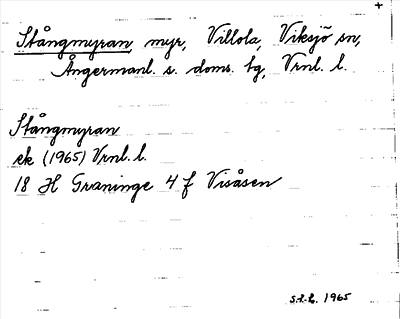 Stångmyran myr, Villola, Viksjö sn,
Ångermanl. s. doms. tg, Vrnl. l.
Stångmyran
ek (1965) Vrnl. l.
18 H Graninge 4 f Visåsen
s.l.L. 1965